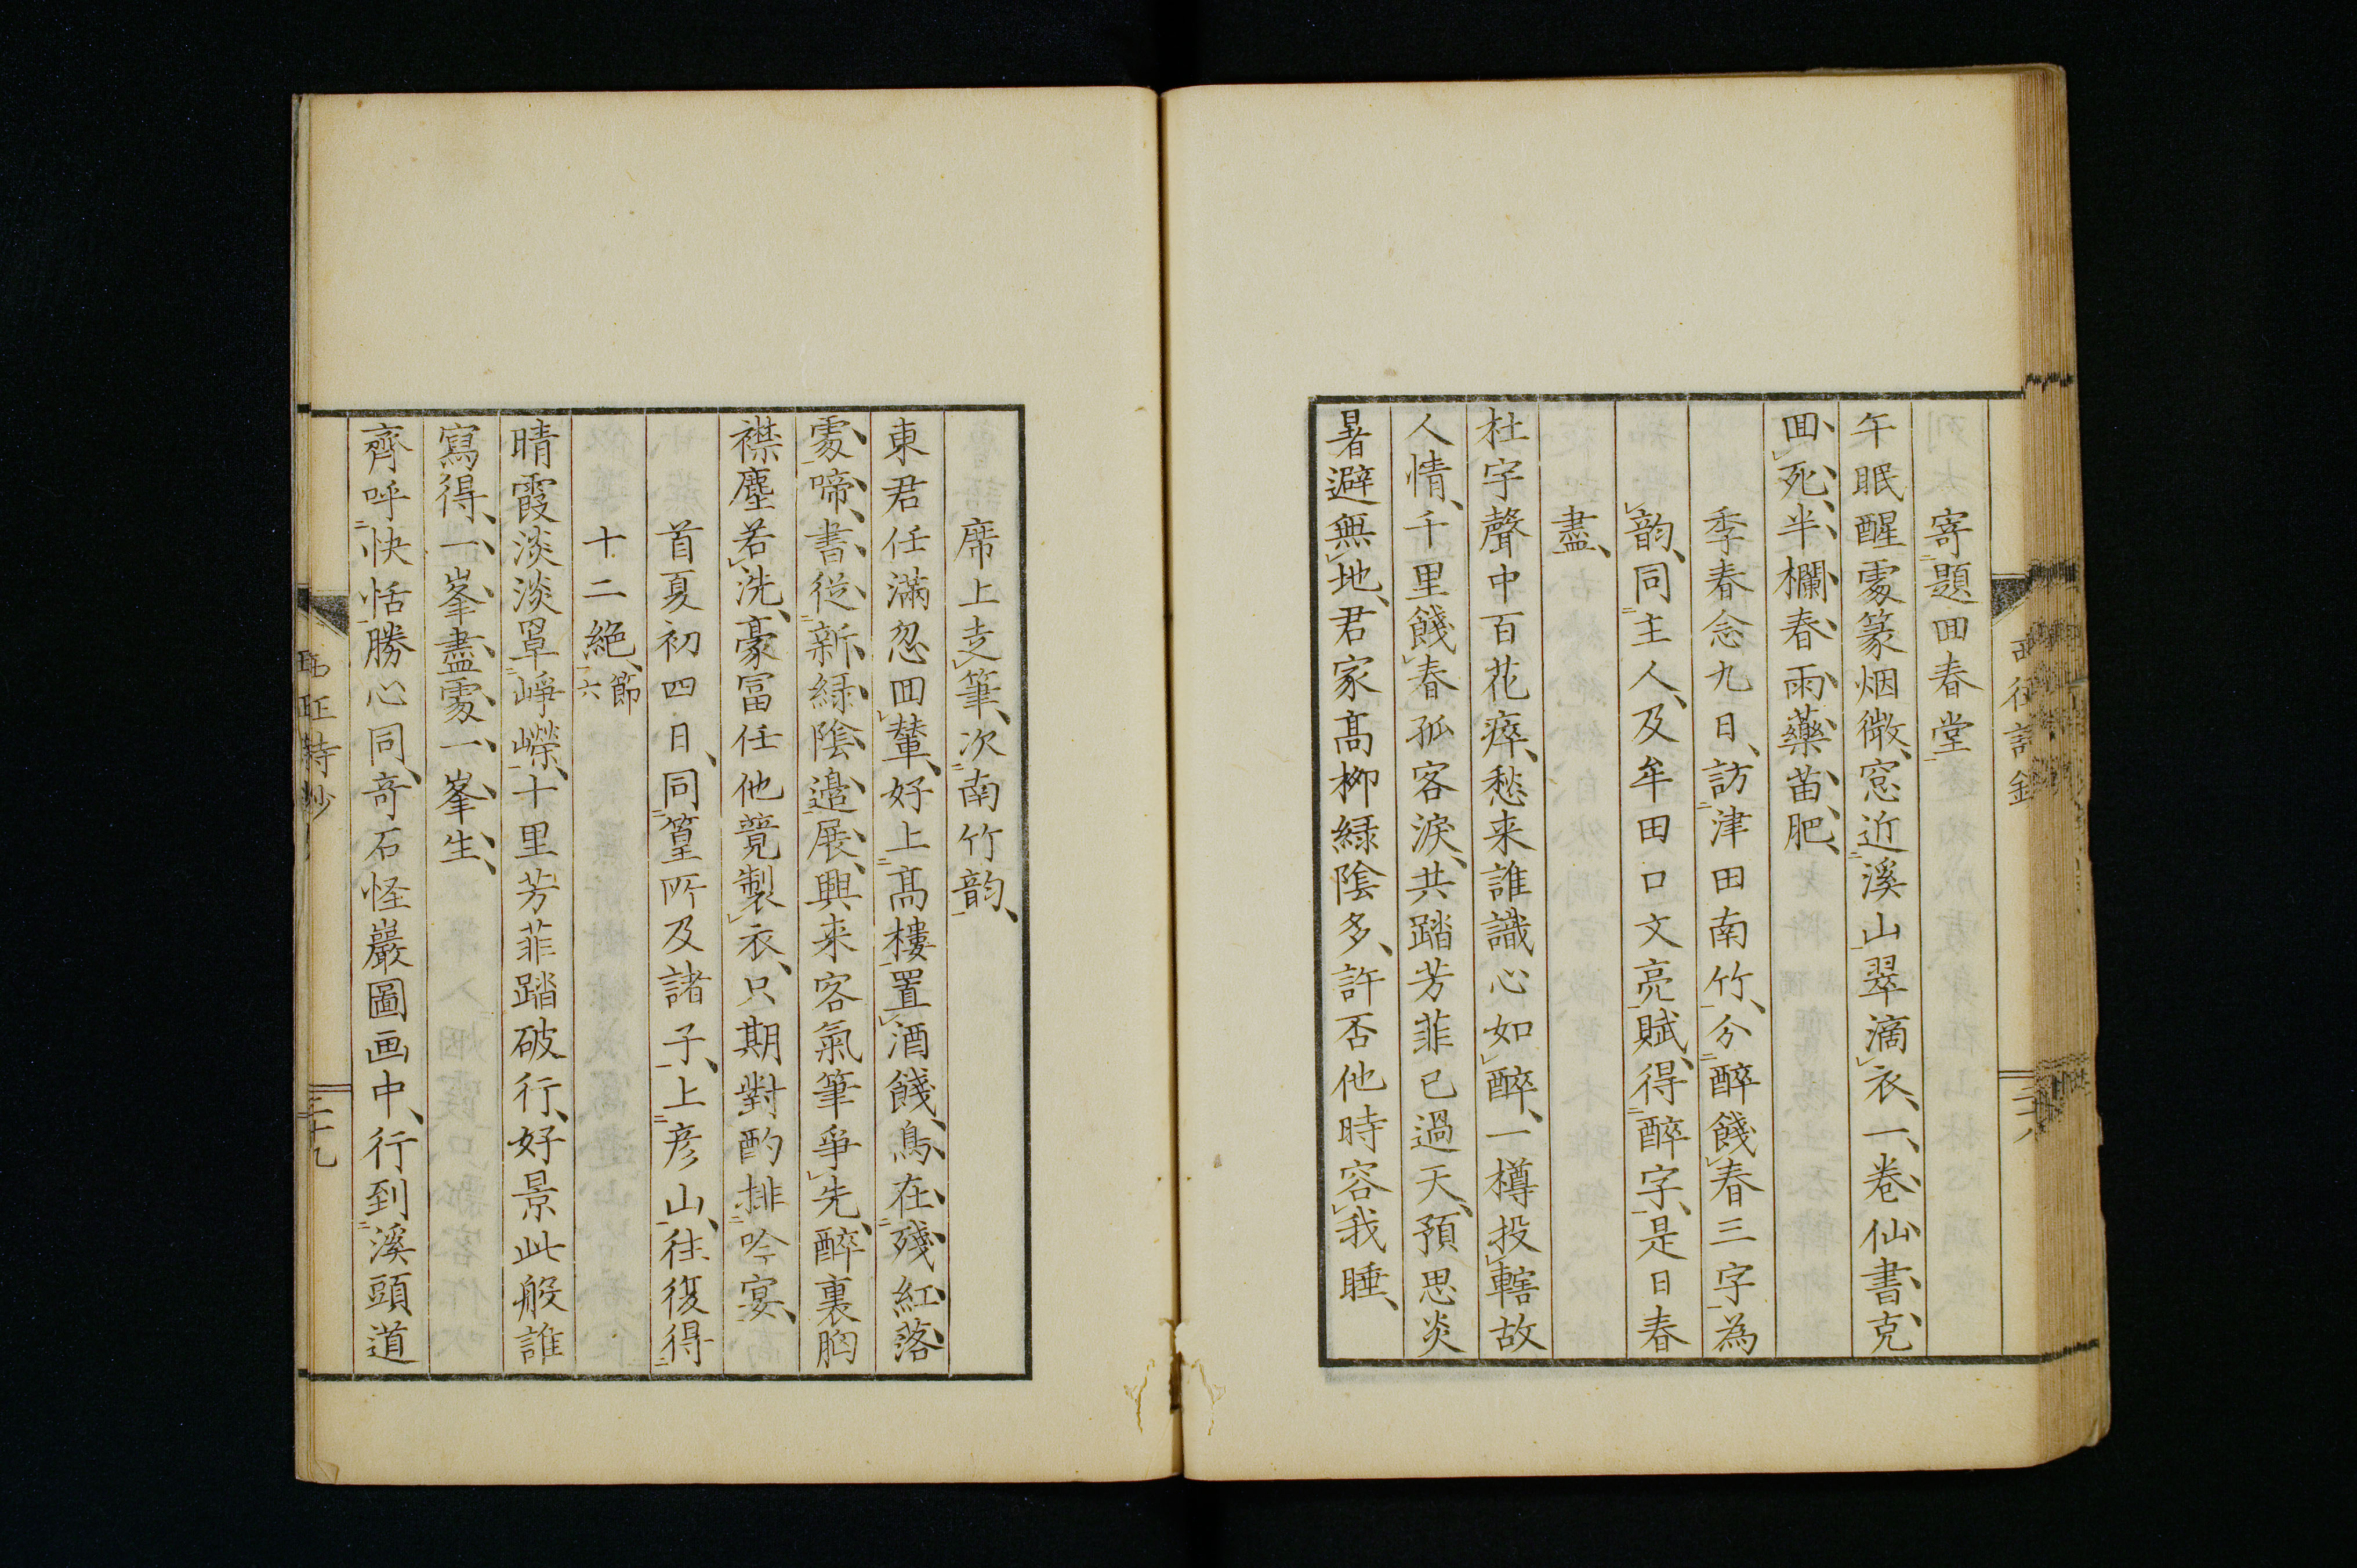 寄題回春堂
午眠醒處篆烟微、窓近溪山翠滴衣、一卷仙書克
回死、半欄春雨藥苗肥、
季春念九日、訪津田南竹、分醉餞春三字為
韵、同主人、及牟田口文亮賦、得醉字、是日春
盡、
杜字聲中百花瘁、愁来誰識心如醉、一樽投轄故
人情、千里餞春孤客淚、共踏芳菲已過天、預思炎
暑避無地、君家髙柳緑陰多、許否他時容我睡、
席上走筆、次南竹韵、
東君任滿忽回輦、好上髙樓置酒餞、鳥在殘紅落
處啼、書從新緑陰邉展、興来客氣筆爭先、醉裏胸
襟塵若洗、豪富任他蓂製衣、只期對酌排吟宴、
首夏初四日、同篁所及諸子、上彦山、往復得
十二絶、節六
晴霞淡淡罩崢嶸、十里芳菲踏破行、好景此般誰
寫得、一峯盡處一峯生、
齊呼快恬勝心同、奇石怪巖圖画中、行到溪頭道
二十九